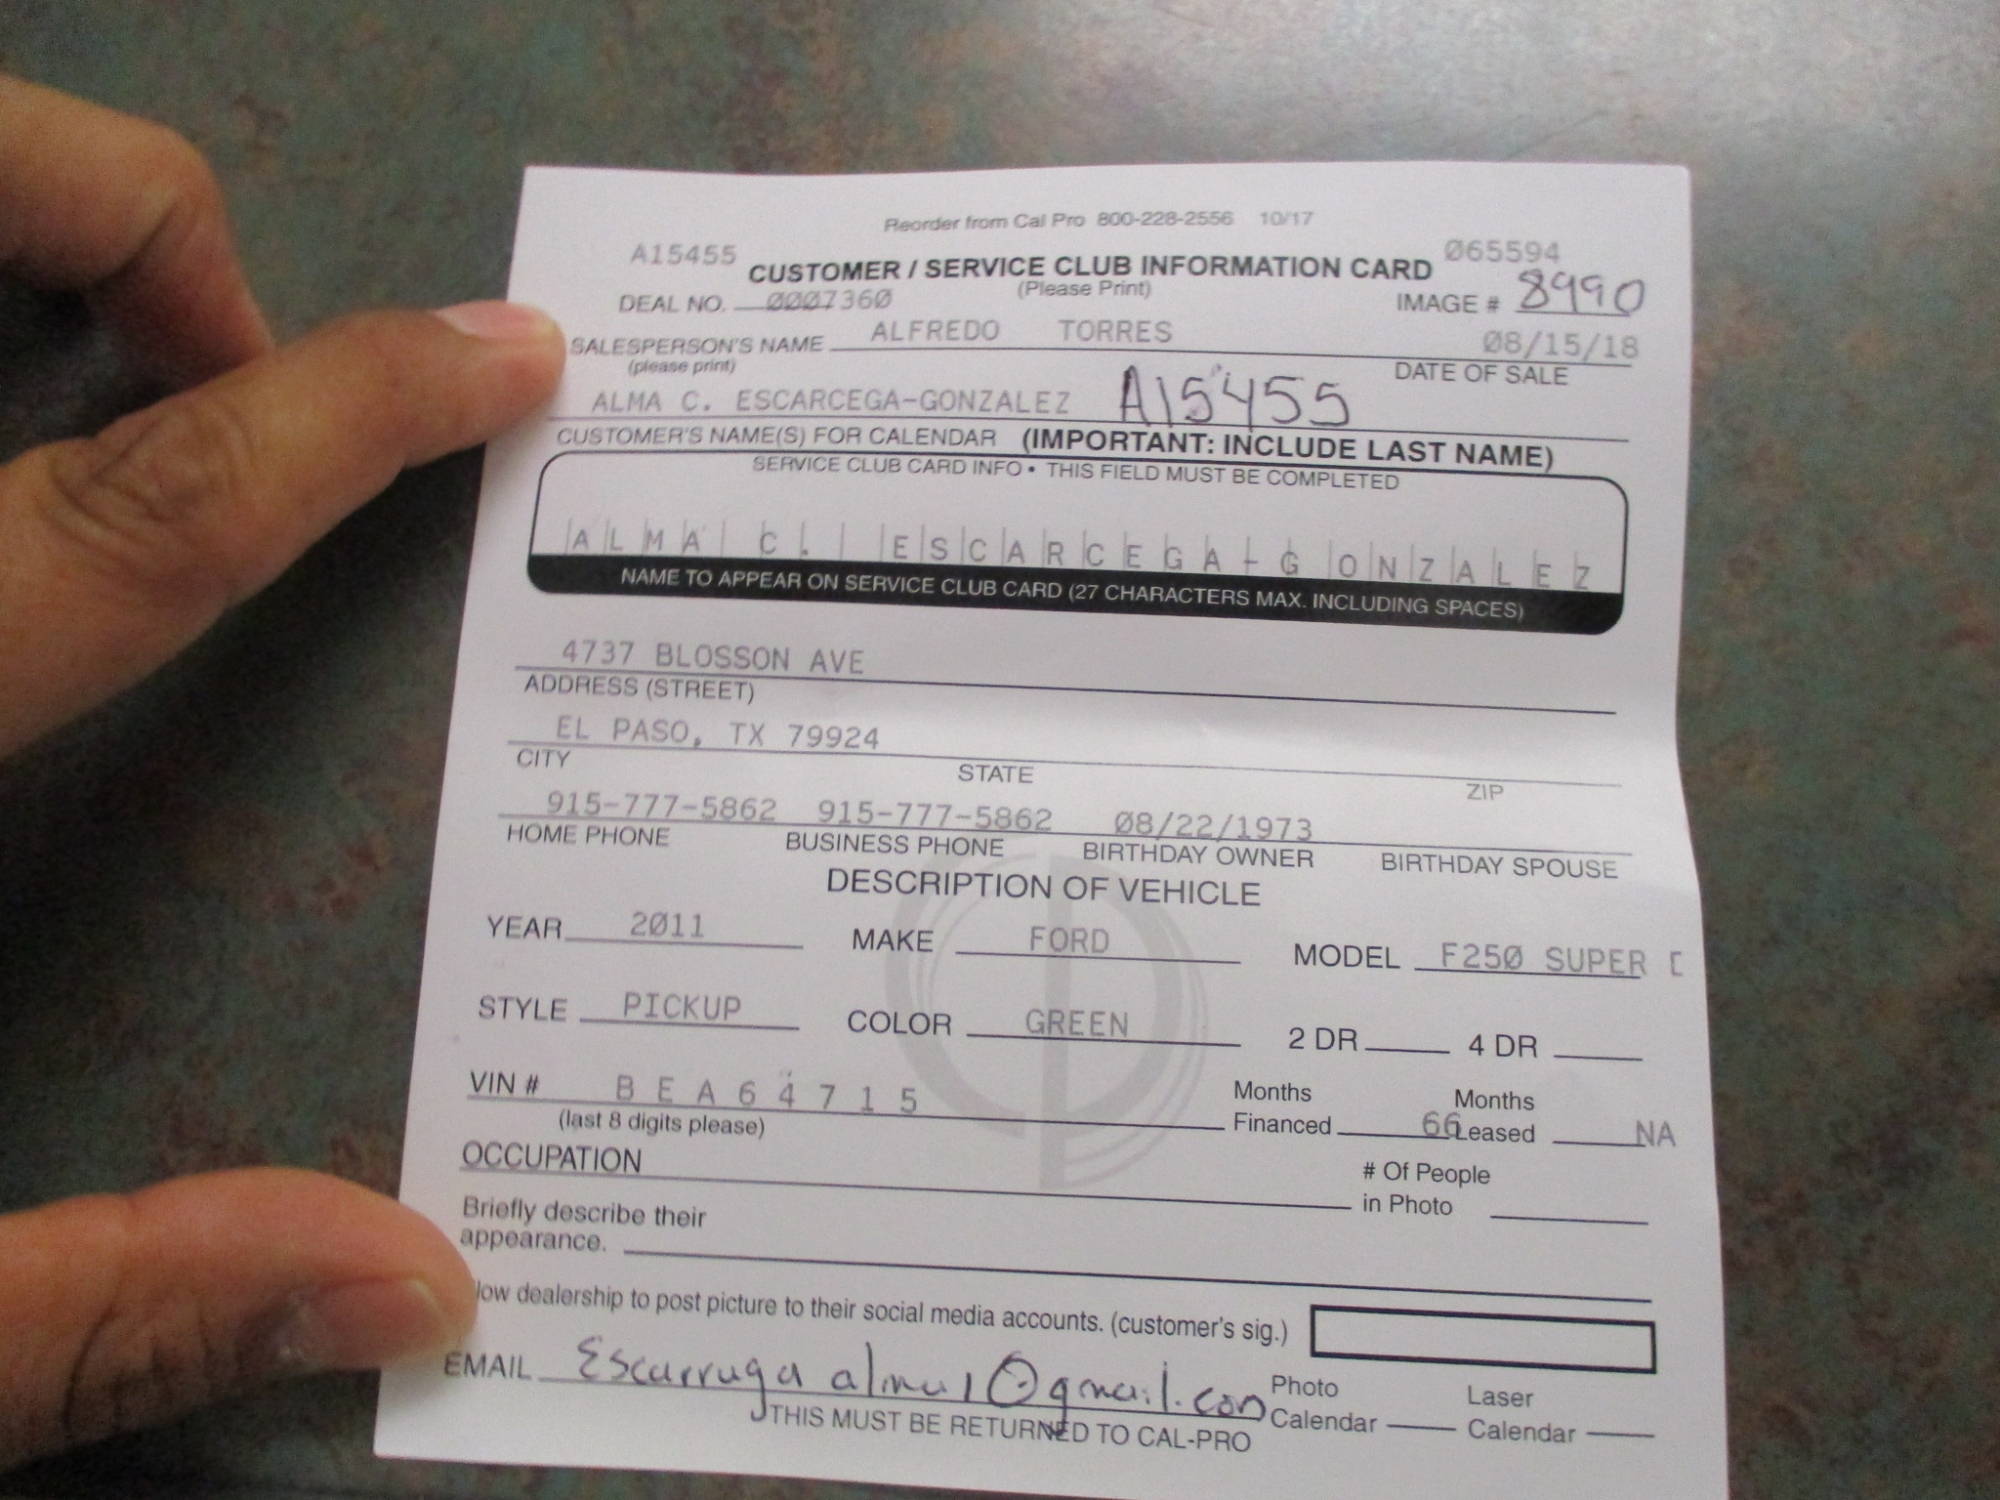 Reorder from Cal Pro 800-228-2556 10/17
A15455 Ø65594
CUSTOMER / SERVICE CLUB INFORMATION CARD
(Please Print)
DEAL NO. ØØØ736Ø IMAGE # 8990
SALESPERSON'S NAME ALFREDO TORRES Ø8/15/18
(please print) DATE OF SALE
ALMA C. ESCARCEGA-GONZALEZ A15455
CUSTOMER'S NAME(S) FOR CALENDAR (IMPORTANT: INCLUDE LAST NAME)
SERVICE CLUB CARD INFO • THIS FIELD MUST BE COMPLETED
ALMA C. ESCARCEGA-GONZALEZ
NAME TO APPEAR ON SERVICE CLUB CARD (27 CHARACTERS MAX. INCLUDING SPACES)
4737 BLOSSON AVE
ADDRESS (STREET)
EL PASO, TX 79924
CITY STATE ZIP
915-777-5862 915-777-5862 Ø8/22/1973
HOME PHONE BUSINESS PHONE BIRTHDAY OWNER BIRTHDAY SPOUSE
DESCRIPTION OF VEHICLE
YEAR 2Ø11 MAKE FORD MODEL F25Ø SUPER D
STYLE PICKUP COLOR GREEN 2 DR 4 DR
VIN # B E A 6 4 7 1 5 Months Financed 66 Months Leased NA
(last 8 digits please)
OCCUPATION # Of People in Photo
Briefly describe their
appearance.
low dealership to post picture to their social media accounts. (customer's sig.)
EMAIL @gmail.com Photo Calendar Laser Calendar
THIS MUST BE RETURNED TO CAL-PRO